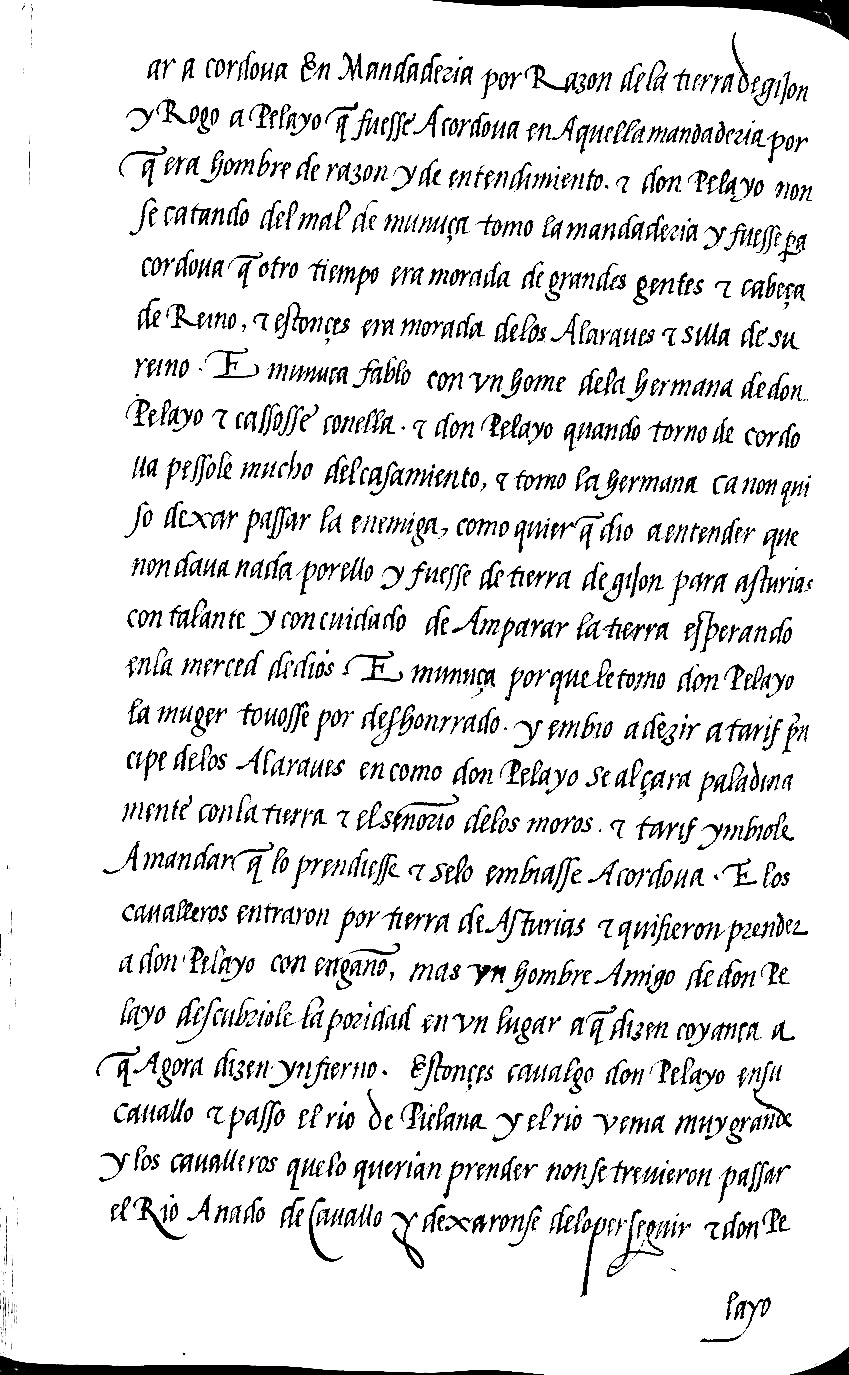 ar a cordoua En Mandaderia por Razon dela tierra de gijon
y Rogo a Pelayo q̃ fuesse A cordoua en Aquella mandaderia por
q̃ era hombre de razon y de entendimiento. τ don Pelayo non
se catando del mal de munuça tomo la mandaderia y fuesse p̱a
cordoua q̃ otro tiempo era morada de grandes gentes τ cabeça
de Reino, τ estonçes era morada delos Alaraues τ silla de su
reino. E munuça fablo con vn home dela hermana de don
Pelayo τ cassosse conella. τ don Pelayo quando torno de cordo
ua pessole mucho del casamiento, τ tomo la hermana ca non qui
so dexar passar la enemiga, como quier q̃ dio a entender que
non daua nada por ello y fuesse de tierra de gijon para asturias
con talante y con cuidado de Amparar la tierra esperando
enla merced de diós. E munuça porque le tomo don Pelayo
la muger touosse por deshonrrado. y embio a dezir a tarif p̃n
cipe delos Alaraues en como don Pelayo se alçara paladina
mente con la tierra τ el señorio delos moros. τ tarif ymbiole
A mandar q̃ lo prendiesse τ selo embiasse A cordoua. E los
caualleros entraron por tierra de Asturias τ quisieron prender
a don Pelayo con engaño, mas vn hombre Amigo de don Pe
layo descubriole la poridad en vn lugar a q̃ dizen coyança a
q̃ Agora dizen ynfierno. Estonçes caualgo don Pelayo en su
cauallo τ passo el rio de Pielana y el rio venia muy grande
y los caualleros que lo querian prender non se treuieron passar
el Rio A nado de Cauallo y dexaronse delo perseguir τ don Pe
layo